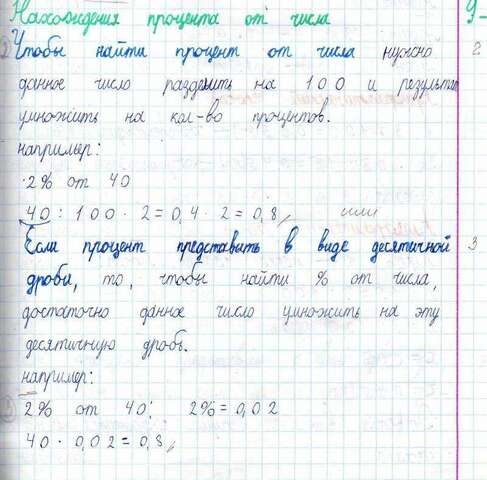 Нахождения процента от числа
Чтобы найти процент от числа нужно
данное число разделить на 100 и результат
умножить на кол-во процентов.
например:
2% от 40
40 : 100 · 2 = 0,4 · 2 = 0,8, или
Если процент представить в виде десятичной
дроби, то, чтобы найти % от числа,
достаточно данное число умножить на эту
десятичную дробь.
например:
2% от 40; 2% = 0,02
40 · 0,02 = 0,8,
9-
2
3